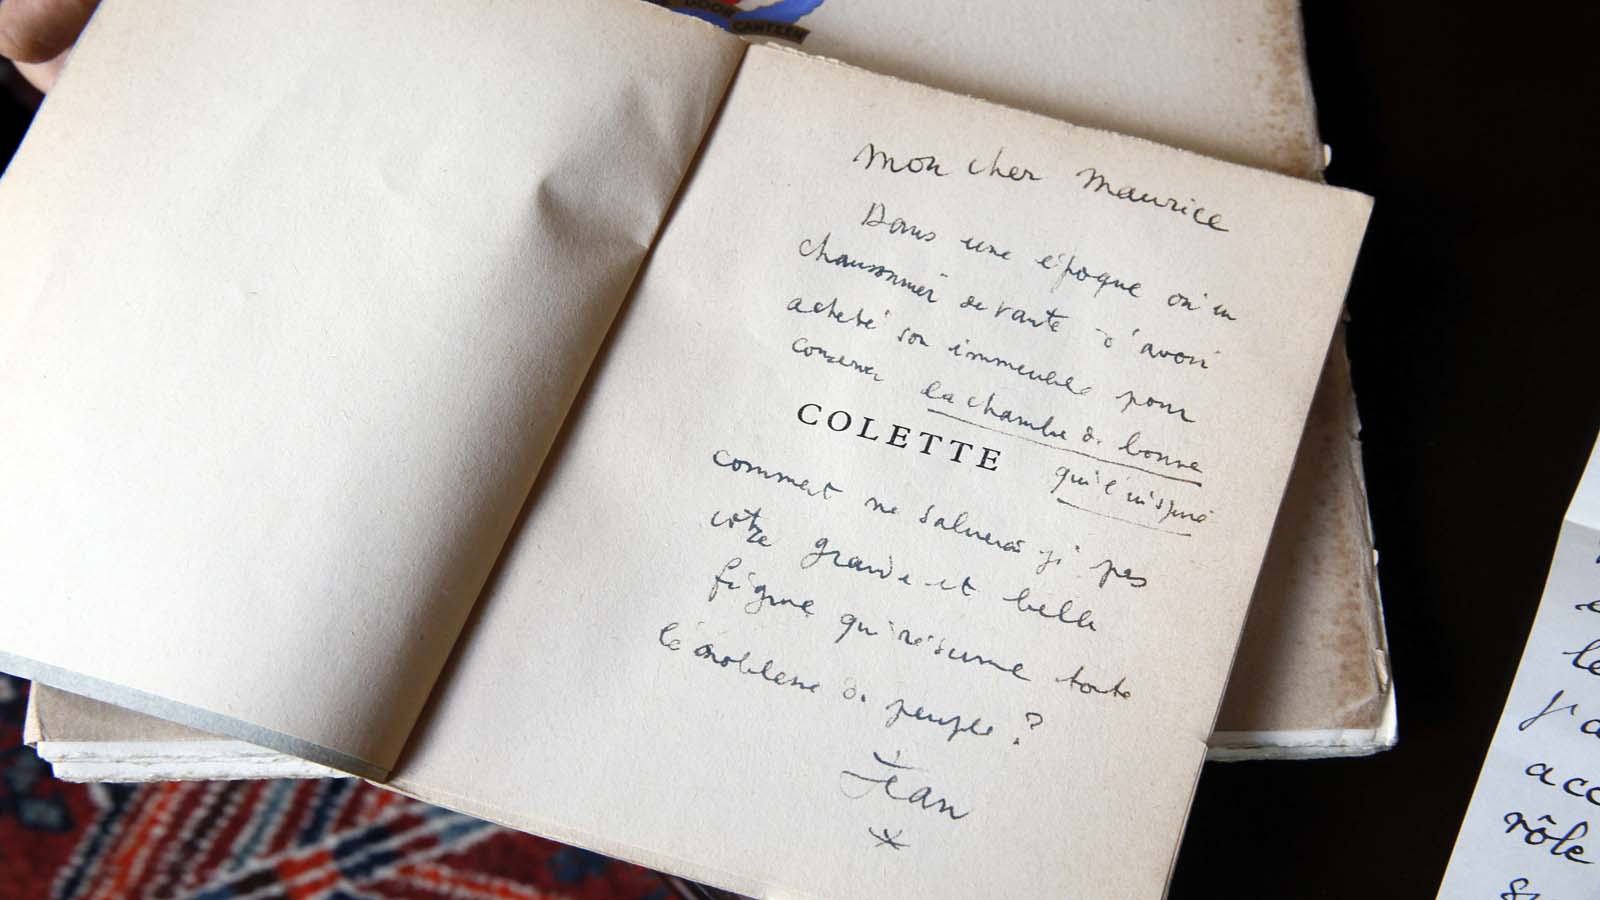 DOOR
CANTEEN
Mon cher Maurice
Dans une époque où un
chansonnier se vante d'avoir
acheté son immeuble pour
conserver la chambre de bonne
COLETTE
qui l'inspire
comment ne saluerais-je pas
votre grande et belle
figure qui résume toute
la noblesse du peuple ?
Jean
*
le
j'a
acc
rôle